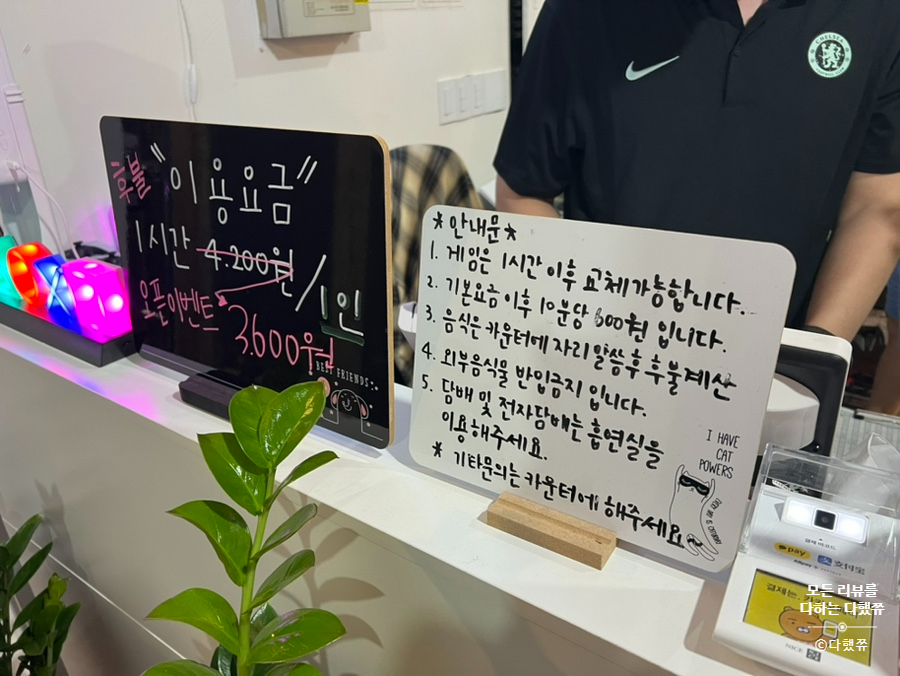 후불 "이용요금"
1시간 4.200원/1인
오픈이벤트 3.600원
BEST FRIENDS
CHELSEA
*안내문*
1. 게임은 1시간 이후 교체가능합니다.
2. 기본요금 이후 10분당 600원 입니다.
3. 음식은 카운터에 자리 말씀 후 후불계산
4. 외부음식물 반입금지 입니다.
5. 담배 및 전자담배는 흡연실을
이용해주세요.
* 기타문의는 카운터에 해주세요
I HAVE
CAT
POWERS
pay
支付宝
결제는, 카
모든 리뷰를
다하는 다했쮸
©다했쮸